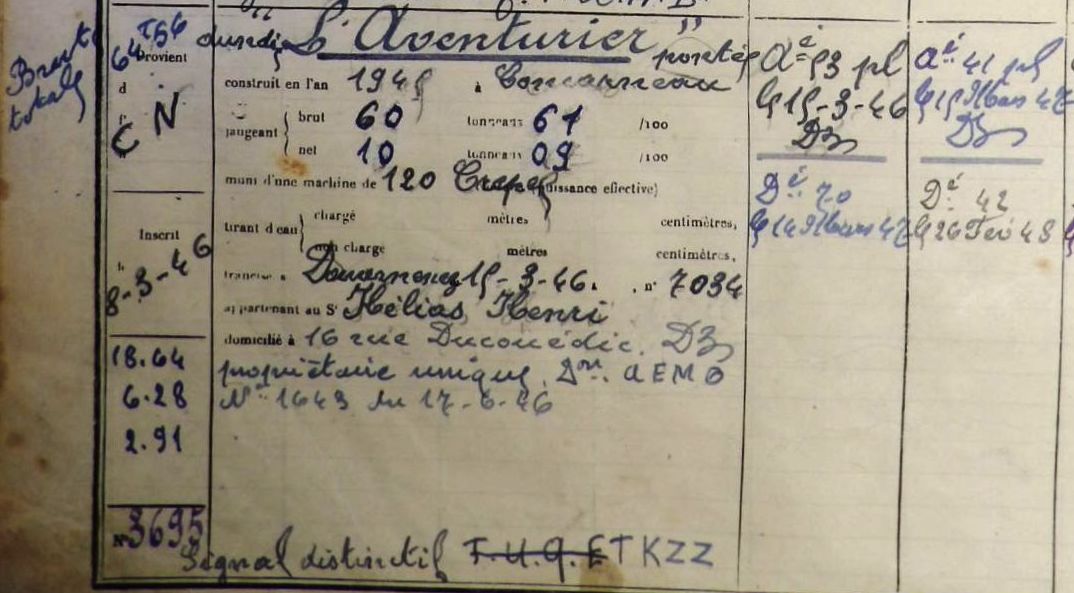 64 T56
Provient
d
C N
Inscrit
le
8-3-46
18.64
6.28
2.91
N° 3695
dundée "L'Aventurier" pontée
construit en l'an 1945 à Concarneau
jaugeant { brut 60 tonneaux 61 /100
net 10 tonneaux 09 /100
muni d'une machine de 120 Crepel (puissance effective)
tirant d'eau { chargé mètres centimètres,
non charge mètres centimètres,
francisé à Douarnenez 15-3-46. , n° 7034
appartenant au Sr Hélias Henri
domicilié à 16 rue Ducouédic. DZ
propriétaire unique. Don. AEMO
N° 1643 du 17-6-46
Signal distinctif F.U.Q.E TKZZ
Aé 53 pl
le 15-3-46
DZ
Dé 70
le 14 Mars 47
Aé 41 pl
le 15 Mars 47
DZ
Dé 42
le 26 Fev 48